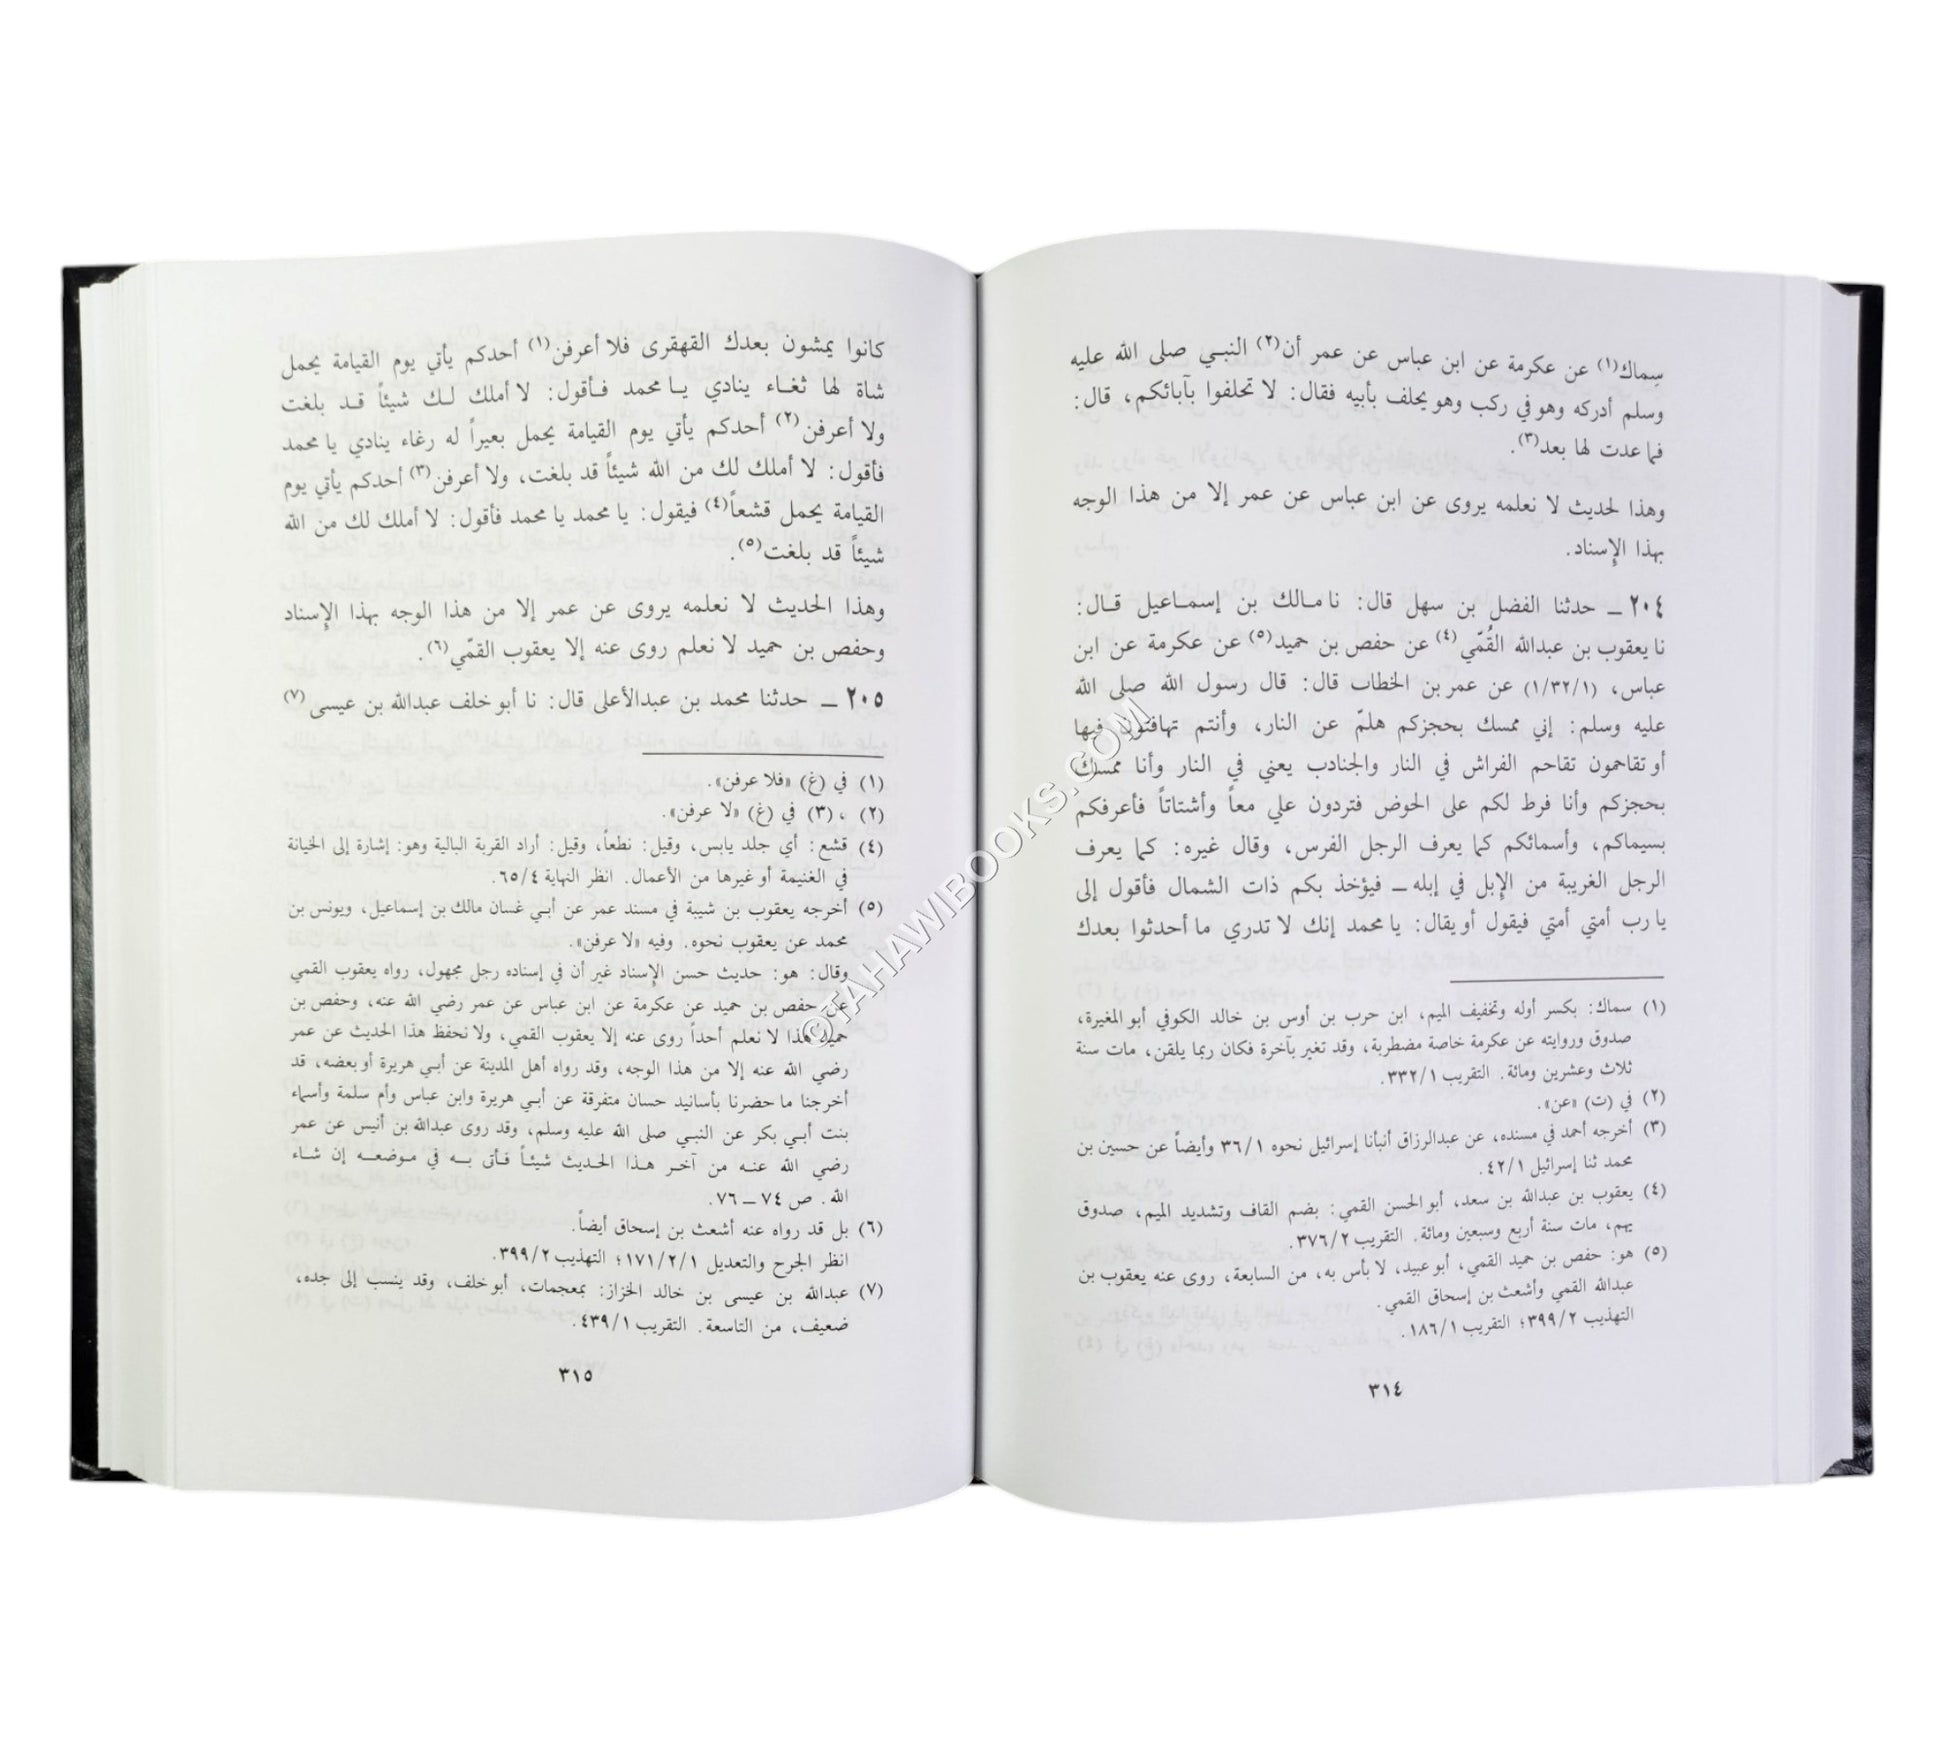 سِماك(١) عن عكرمة عن ابن عباس عن عمر أن(٢) النبي صلى الله عليه
وسلم أدركه وهو في ركب وهو يحلف بأبيه فقال: لا تحلفوا بآبائكم، قال:
فما عدت لها بعد(٣).
وهذا لحديث لا نعلمه يروى عن ابن عباس عن عمر إلا من هذا الوجه
بهذا الإسناد.
٢٠٤ ــ حدثنا الفضل بن سهل قال: نا مالك بن إسماعيل قال:
نا يعقوب بن عبدالله القُمّي(٤) عن حفص بن حميد(٥) عن عكرمة عن ابن
عباس، (١/٣٢/١) عن عمر بن الخطاب قال: قال رسول الله صلى الله
عليه وسلم: إني ممسك بحجزكم هلمّ عن النار، وأنتم تهافتون فيها
أو تقاحمون تقاحم الفراش في النار والجنادب يعني في النار وأنا ممسك
بحجزكم وأنا فرط لكم على الحوض فتردون علي معاً وأشتاتاً فأعرفكم
بسيماكم، وأسمائكم كما يعرف الرجل الفرس، وقال غيره: كما يعرف
الرجل الغريبة من الإبل في إبله ــ فيؤخذ بكم ذات الشمال فأقول إلى
يا رب أمتي أمتي فيقول أو يقال: يا محمد إنك لا تدري ما أحدثوا بعدك
(١) سماك: بكسر أوله وتخفيف الميم، ابن حرب بن أوس بن خالد الكوفي أبو المغيرة،
صدوق وروايته عن عكرمة خاصة مضطربة، وقد تغير بآخرة فكان ربما يلقن، مات سنة
ثلاث وعشرين ومائة. التقريب ٣٣٢/١.
(٢) في (ت) «عن».
(٣) أخرجه أحمد في مسنده، عن عبدالرزاق أنبأنا إسرائيل نحوه ٣٦/١ وأيضاً عن حسين بن
محمد ثنا إسرائيل ٤٢/١.
(٤) يعقوب بن عبدالله بن سعد، أبو الحسن القمي: بضم القاف وتشديد الميم، صدوق
يهم، مات سنة أربع وسبعين ومائة. التقريب ٣٧٦/٢.
(٥) هو: حفص بن حميد القمي، أبو عبيد، لا بأس به، من السابعة، روى عنه يعقوب بن
عبدالله القمي وأشعث بن إسحاق القمي.
التهذيب ٣٩٩/٢؛ التقريب ١٨٦/١.
٣١٤
كانوا يمشون بعدك القهقرى فلا أعرفن(١) أحدكم يأتي يوم القيامة يحمل
شاة لها ثغاء ينادي يا محمد فأقول: لا أملك لك شيئاً قد بلغت
ولا أعرفن(٢) أحدكم يأتي يوم القيامة يحمل بعيراً له رغاء ينادي يا محمد
فأقول: لا أملك لك من الله شيئاً قد بلغت، ولا أعرفن(٣) أحدكم يأتي يوم
القيامة يحمل قشعاً(٤) فيقول: يا محمد يا محمد فأقول: لا أملك لك من الله
شيئاً قد بلغت(٥).
وهذا الحديث لا نعلمه يروى عن عمر إلا من هذا الوجه بهذا الإسناد
وحفص بن حميد لا نعلم روى عنه إلا يعقوب القمّي(٦).
٢٠٥ ــ حدثنا محمد بن عبدالأعلى قال: نا أبو خلف عبدالله بن عيسى(٧)
(١) في (غ) «فلا عرفن».
(٢) ، (٣) في (غ) «لا عرفن».
(٤) قشع: أي جلد يابس، وقيل: نطعاً، وقيل: أراد القربة البالية وهو: إشارة إلى الخيانة
في الغنيمة أو غيرها من الأعمال. انظر النهاية ٦٥/٤.
(٥) أخرجه يعقوب بن شيبة في مسند عمر عن أبي غسان مالك بن إسماعيل، ويونس بن
محمد عن يعقوب نحوه. وفيه «لا عرفن».
وقال: هو: حديث حسن الإسناد غير أن في إسناده رجل مجهول، رواه يعقوب القمي
عن حفص بن حميد عن عكرمة عن ابن عباس عن عمر رضي الله عنه، وحفص بن
حميد هذا لا نعلم أحداً روى عنه إلا يعقوب القمي، ولا نحفظ هذا الحديث عن عمر
رضي الله عنه إلا من هذا الوجه، وقد رواه أهل المدينة عن أبي هريرة أو بعضه، قد
أخرجنا ما حضرنا بأسانيد حسان متفرقة عن أبي هريرة وابن عباس وأم سلمة وأسماء
بنت أبي بكر عن النبي صلى الله عليه وسلم، وقد روى عبدالله بن أنيس عن عمر
رضي الله عنه من آخر هذا الحديث شيئاً فأتى به في موضعه إن شاء
الله. ص ٧٤ ــ ٧٦.
(٦) بل قد رواه عنه أشعث بن إسحاق أيضاً.
انظر الجرح والتعديل ١٧١/٢/١؛ التهذيب ٣٩٩/٢.
(٧) عبدالله بن عيسى بن خالد الخزاز: بمعجمات، أبو خلف، وقد ينسب إلى جده،
ضعيف، من التاسعة. التقريب ٤٣٩/١.
٣١٥
©TAHAWIBOOKS.COM